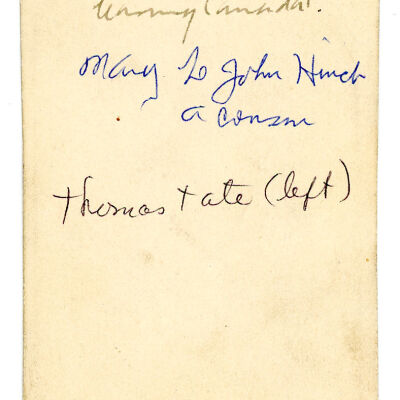 Canada.
Mary to John Hinch
a conson
Thomas Tate (left)